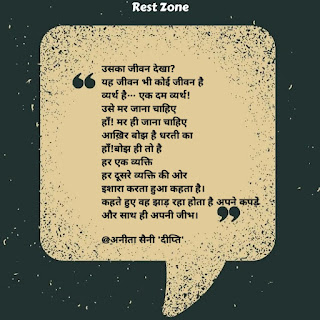 Rest Zone
उसका जीवन देखा?
यह जीवन भी कोई जीवन है
व्यर्थ है… एक दम व्यर्थ!
उसे मर जाना चाहिए
हाँ! मर ही जाना चाहिए
आख़िर बोझ है धरती का
हाँ!बोझ ही तो है
हर एक व्यक्ति
हर दूसरे व्यक्ति की ओर
इशारा करता हुआ कहता है।
कहते हुए वह झाड़ रहा होता है अपने कपड़े
और साथ ही अपनी जीभ।
@अनीता सैनी 'दीप्ति'